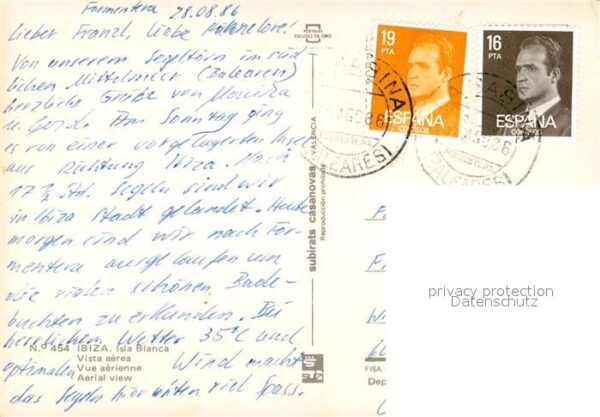 Formentera 28.08.86
Lieber Franzl, liebe Hannelore!
Von unserem Segeltörn im süd
lichen Mittelmeer (Balearen)
herzliche Grüße von Monika
u. Gerd. Am Sonntag ging
es von einer vorgelagerten Insel
aus Richtung Ibiza. Nach
17 ½ Std. Segeln sind wir
in Ibiza Stadt gelandet. Heute
morgen sind wir nach For-
mentera ausgelaufen um
die vielen schönen Bade-
buchten zu erkunden. Bei
herrlichem Wetter 35°C und
optimalen Wind macht
das Segeln hier unten viel Spass.
N.º 454 IBIZA. Isla Blanca
Vista aérea
Vue aérienne
Aerial view
POSTALES
ESCUDO DE ORO
subirats casanovas - VALENCIA
Reproducción prohibida
19
PTA
ESPAÑA
CORREOS
16
PTA
ESPAÑA
CORREOS
AGO 86
(BALEARES)
AGO 86
(BALEARES)
privacy protection
Datenschutz
FISA
Dep